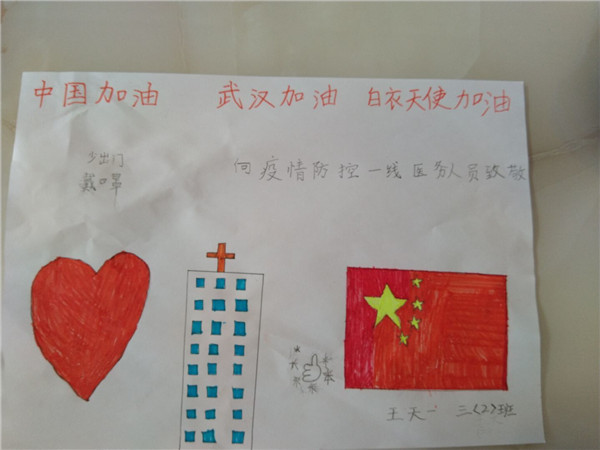 中国加油 武汉加油 白衣天使加油
少出门
戴口罩
向疫情防控一线医务人员致敬
王天一 三(2)班